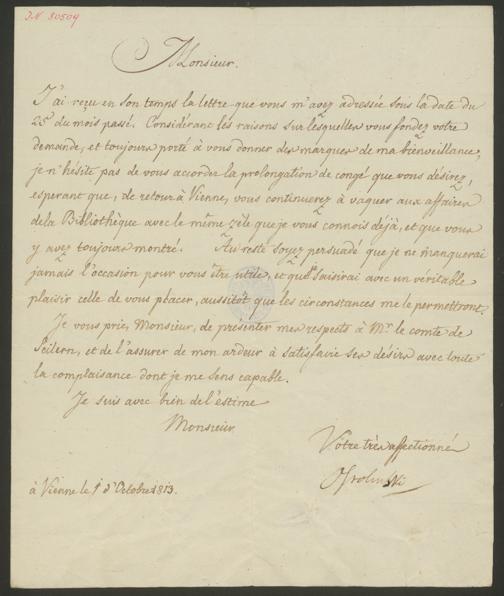 J.N. 80509
Monsieur.
J'ai reçu en son temps la lettre que vous m'avez adressée sous la date du
25 du mois passé. Considérant les raisons sur lesquelles vous fondez votre
demande, et toujours porté à vous donner des marques de ma bienveillance,
je n'hésite pas de vous accorder la prolongation de congé que vous désirez,
esperant que, de retour à Vienne, vous continuerez à vaquer aux affaires
de la Bibliothèque avec le même zèle que je vous connois déjà, et que vous
y avez toujours montré. Au reste soyez persuadé que je ne manquerai
jamais l'occasion pour vous être utile, et que saisirai avec un véritable
plaisir celle de vous placer, aussitôt que les circonstances me le permettront.
Je vous prie, Monsieur, de présenter mes respects à Mr. le comte de
Seilern, et de l'assurer de mon ardeur à satisfaire ses désirs avec toute
la complaisance dont je me sens capable.
Je suis avec bien de l'estime
Monsieur
Votre très affectionné
à Vienne le 1 d'Octobre 1813.